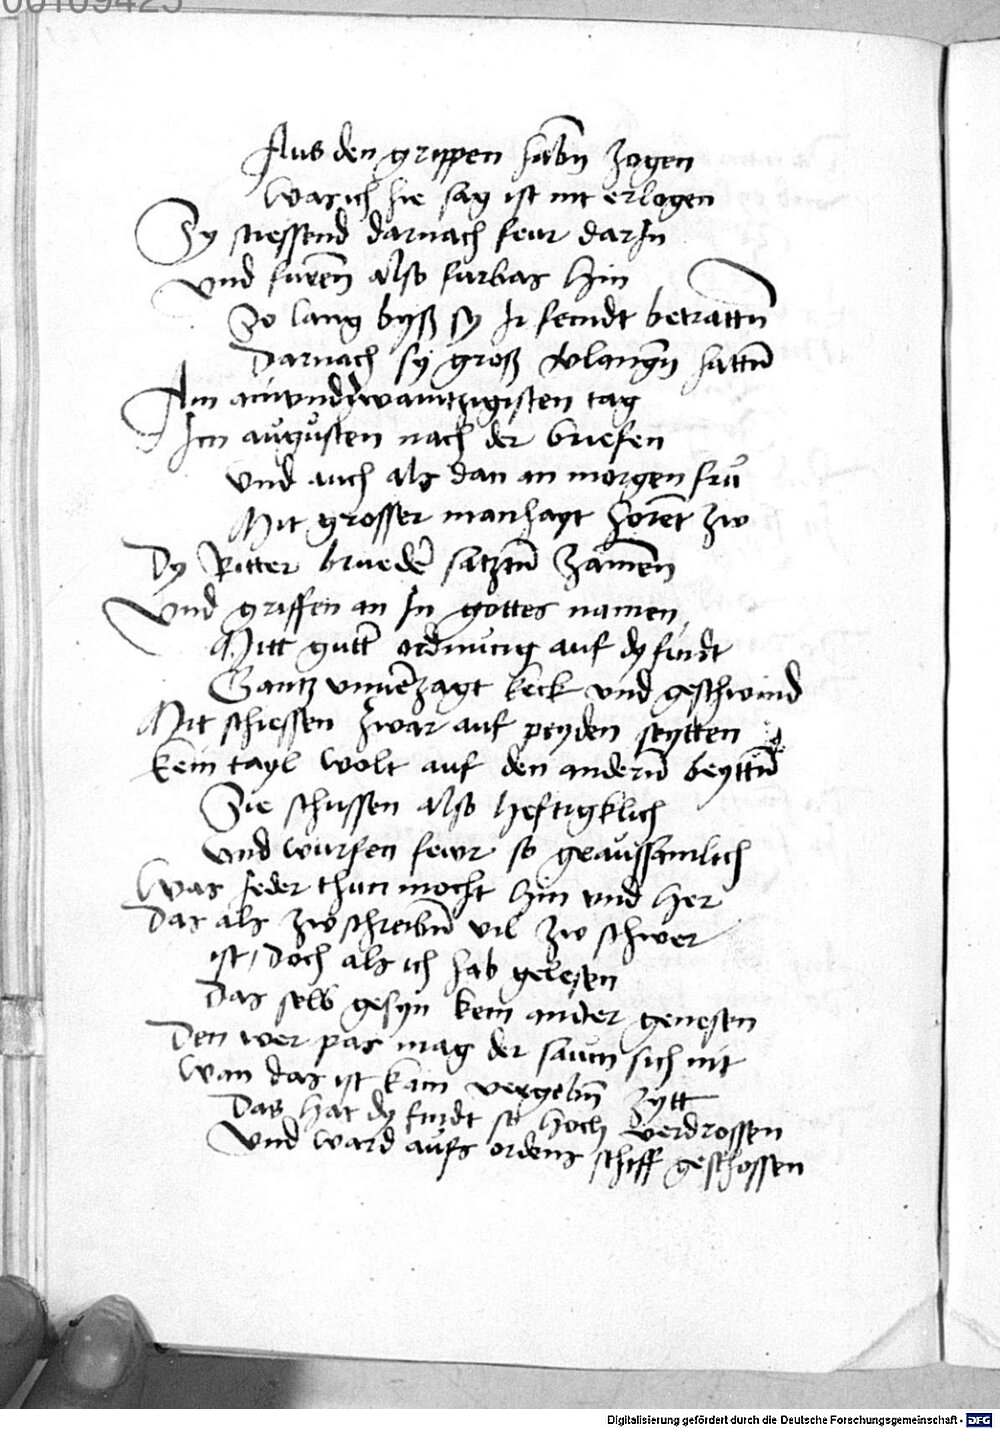 00109425
Aus den grippen habn zogen
Was ich hie sag ist nit erlogen
Sy stiessend darnach feur dar In
Und furen also furbas hin
So lang byß sy Ir feindt betrattn
Darnach sy groß vlangn hattn
Am ainundzwaintzigisten tag
Im augusten nach der briefen
Und auch als dan an morgen fru
Mit grosser manhayt zw
Dy Ritter brueder satztn zamen
Und griffen an In gottes namen
Mitt gutter ordnung auf dy findt
Gantz unverzagt keck und geschwind
Mit schiessen zwar auf peyden seytten
Kein tayl wolt auf den andern beyttn
Sie schussen also heftigklich
Und wurfen fewr so graussamlich
Was jeder thun mocht hin und her
Das als zw schreibn vil zw schwer
ist / Doch als ich hab gelesen
Das selb gesyn kein ander genesen
Den wer pas mag der saum sich nit
Wan das ist kain vergebn zytt
Das hat dy findt so hoch verdrossen
Und ward aufs ordens schiff geschossen
Digitalisierung gefördert durch die Deutsche Forschungsgemeinschaft - DFG